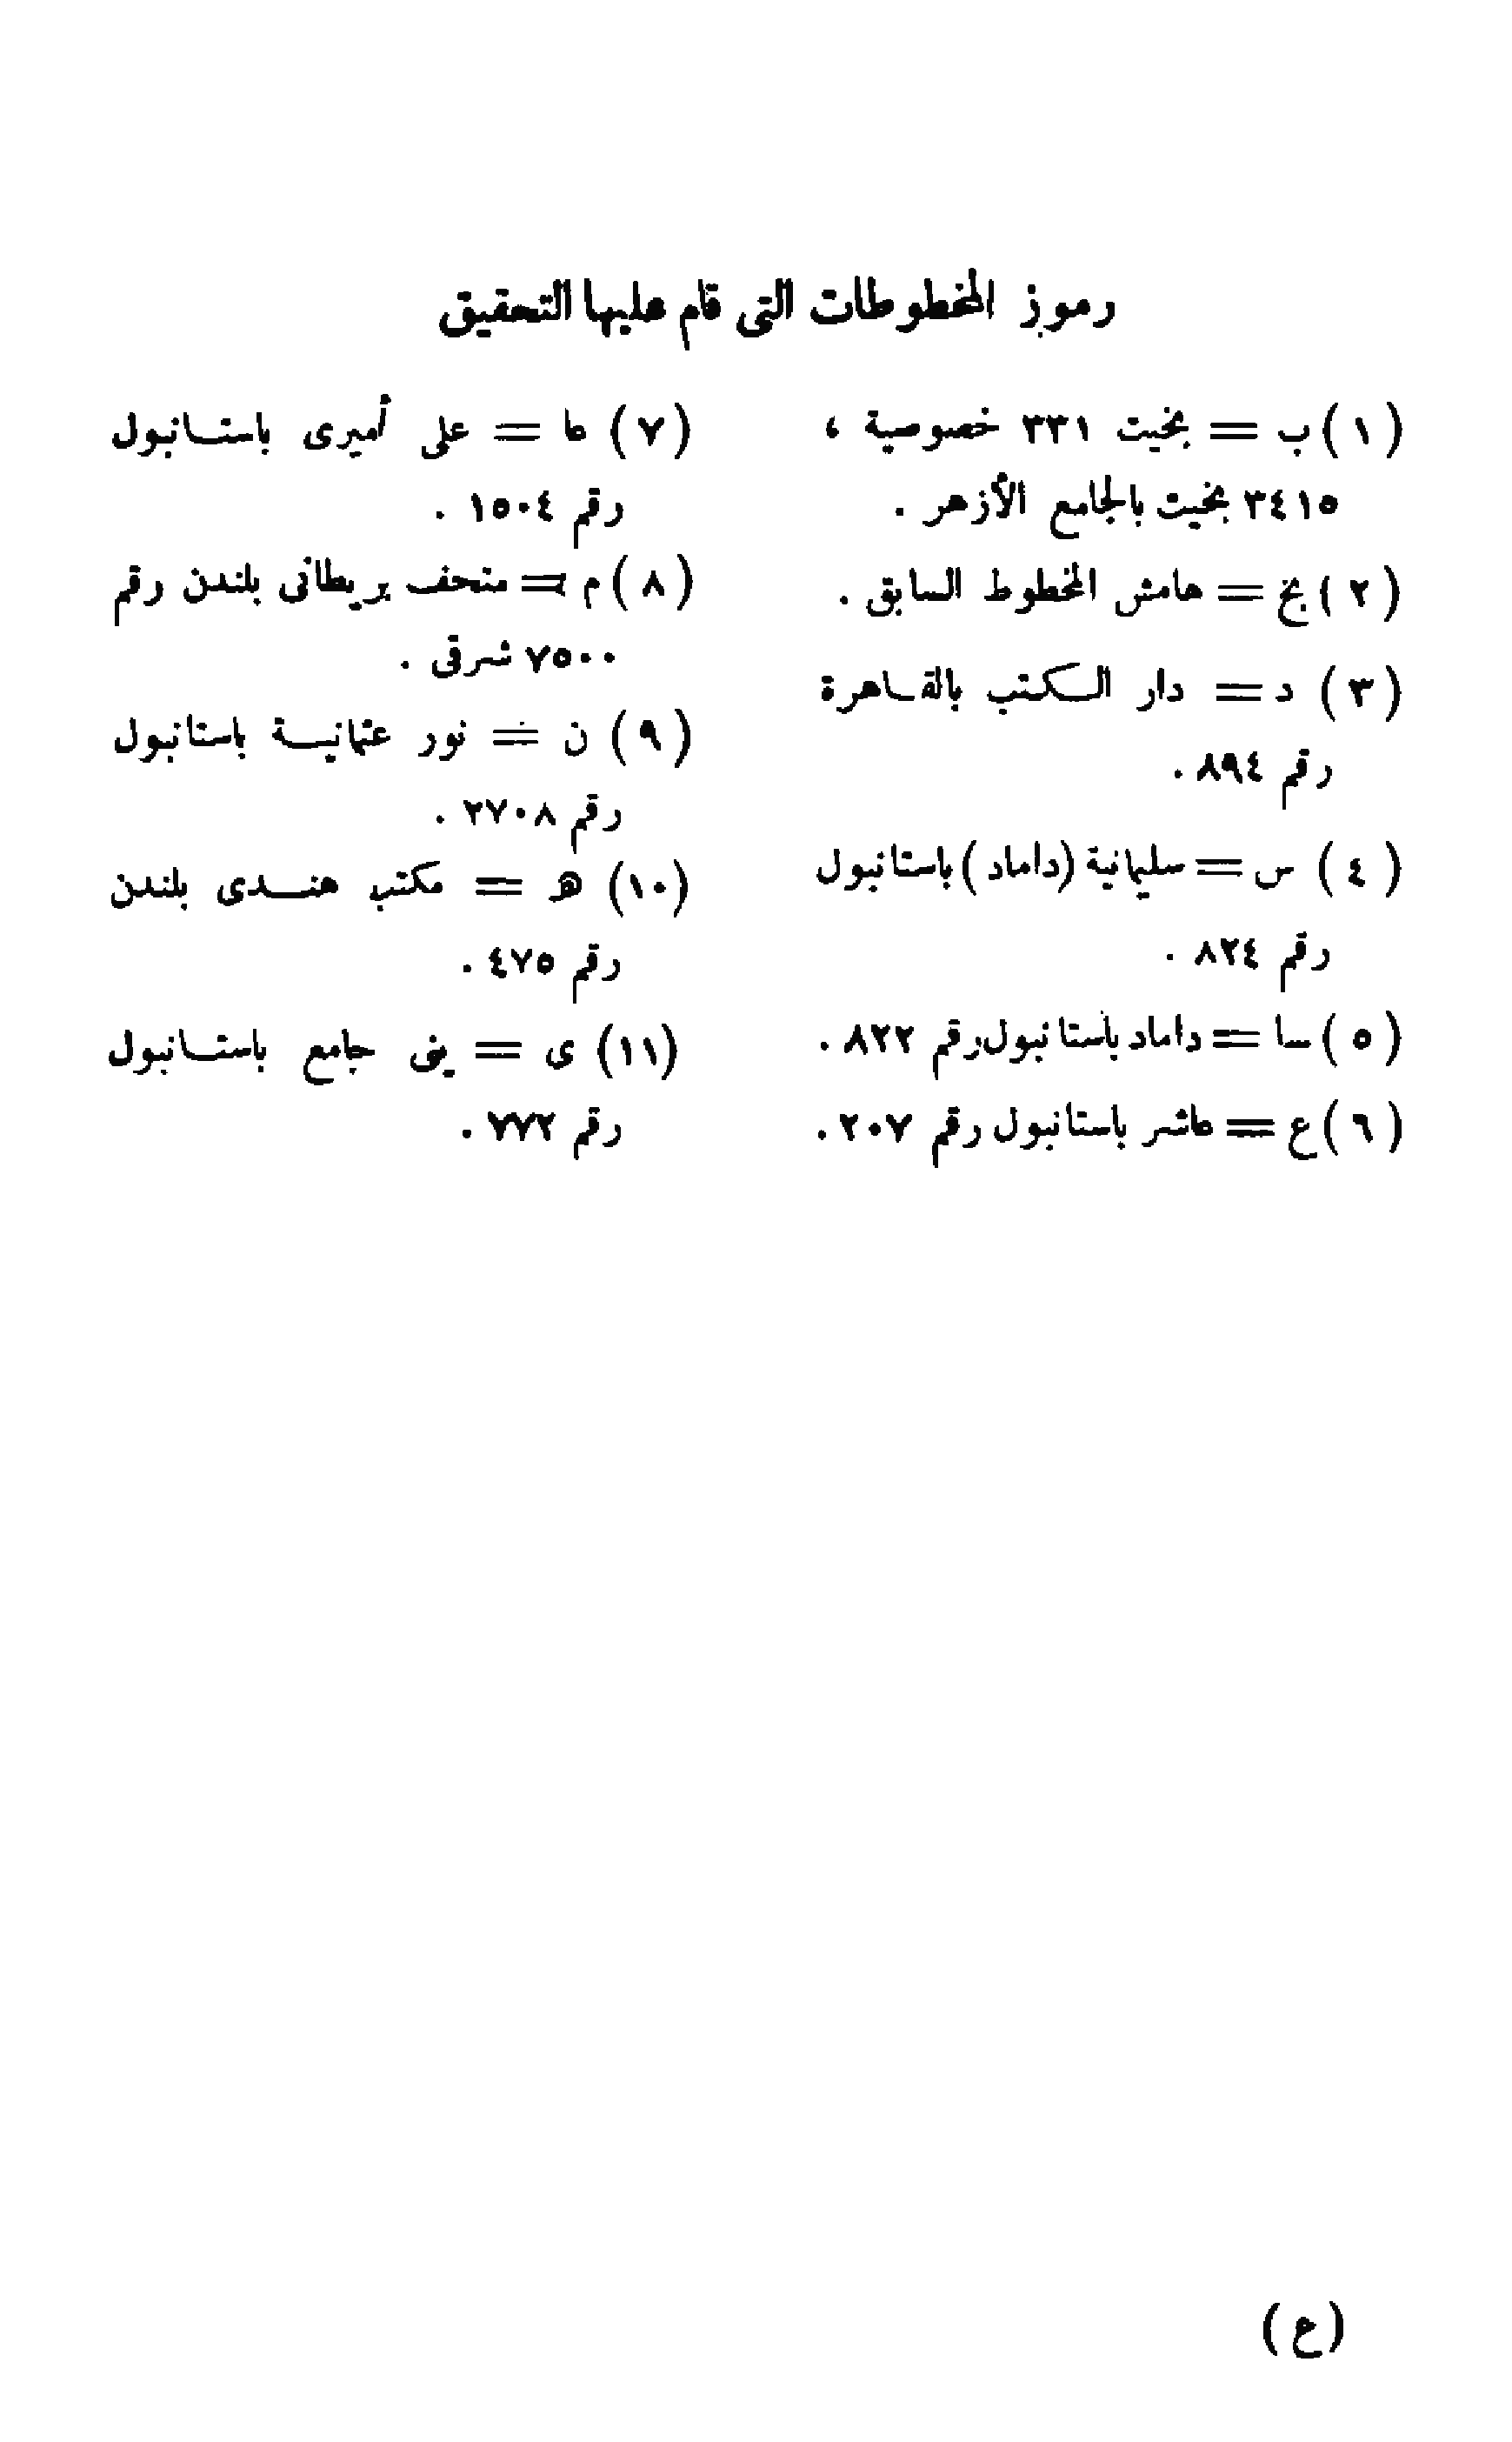 رموز المخطوطات التى قام عليها التحقيق
(١) ب = بخيت ٣٣١ خصوصية ،
٣٤١٥ بخيت بالجامع الأزهر .
(٢) بخ = هامش المخطوط السابق .
(٣) د = دار الكتب بالقاهرة
رقم ٨٩٤ .
(٤) س = سليمانية (داماد) باستانبول
رقم ٨٢٤ .
(٥) سا = داماد باستانبول رقم ٨٢٢ .
(٦) ع = عاشر باستانبول رقم ٢٠٧ .
(٧) عا = على أميرى باستانبول
رقم ١٥٠٤ .
(٨) م = متحف بريطانى بلندن رقم
٧٥٠٠ شرقى .
(٩) ن = نور عثمانية باستانبول
رقم ٢٧٠٨ .
(١٠) ه = مكتب هندى بلندن
رقم ٤٧٥ .
(١١) ى = ينى جامع باستانبول
رقم ٧٧٢ .
(ع)